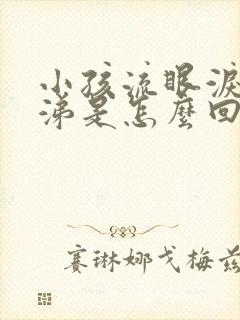 小孩流眼淚
涕是怎麼回
賽琳娜戈梅茲